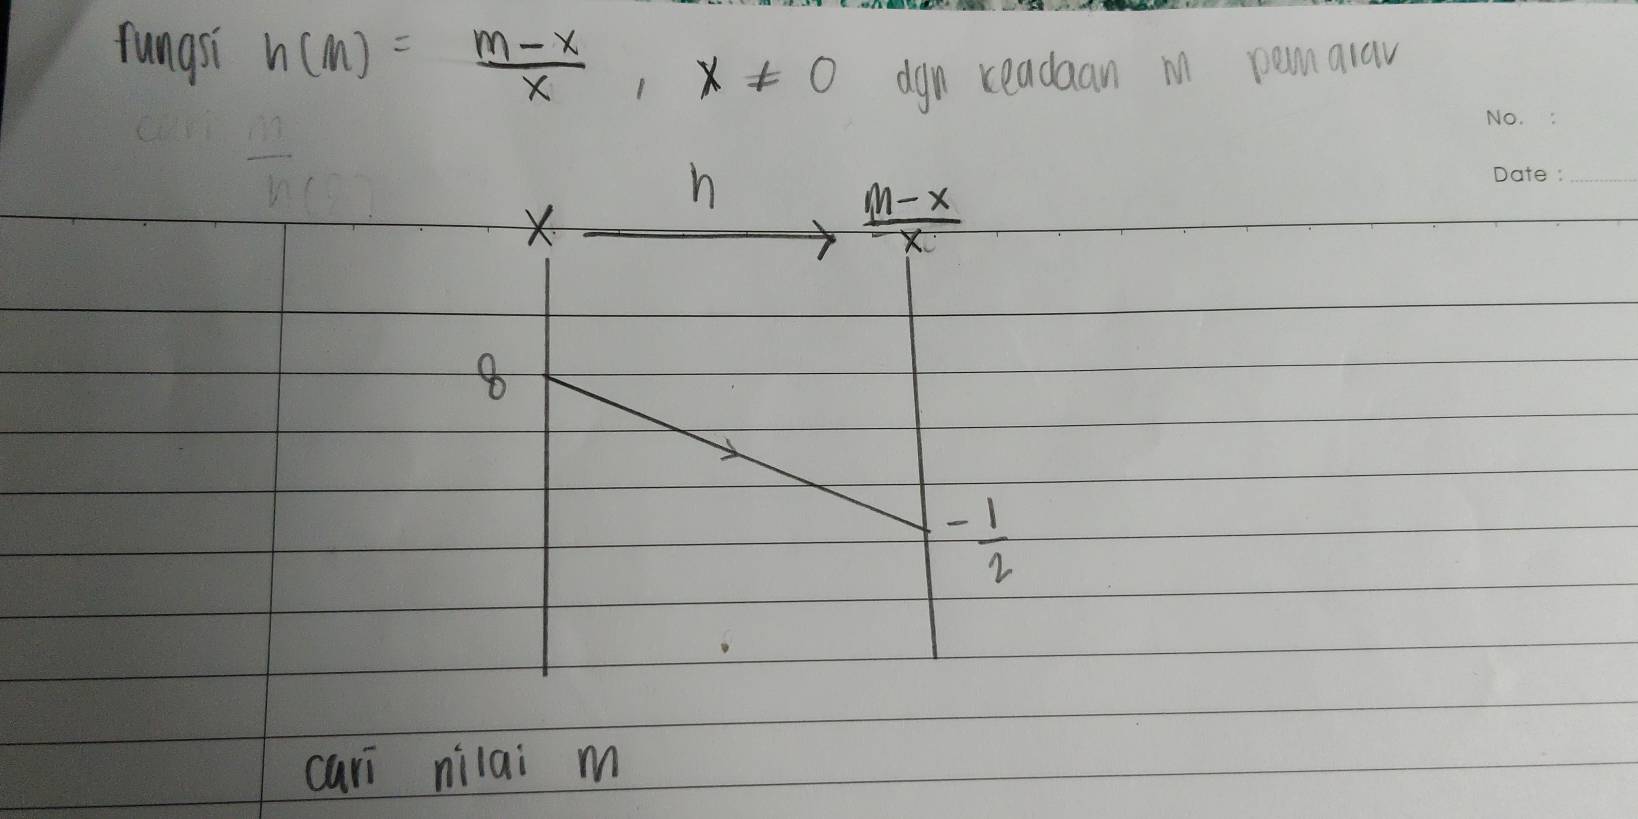 fungsi h(m) = m - x / x , x ≠ 0 dgn keadaan m pemalar
cari m / h(
No. :
Date :
h
x → m - x / x
8
- 1/2
cari nilai m